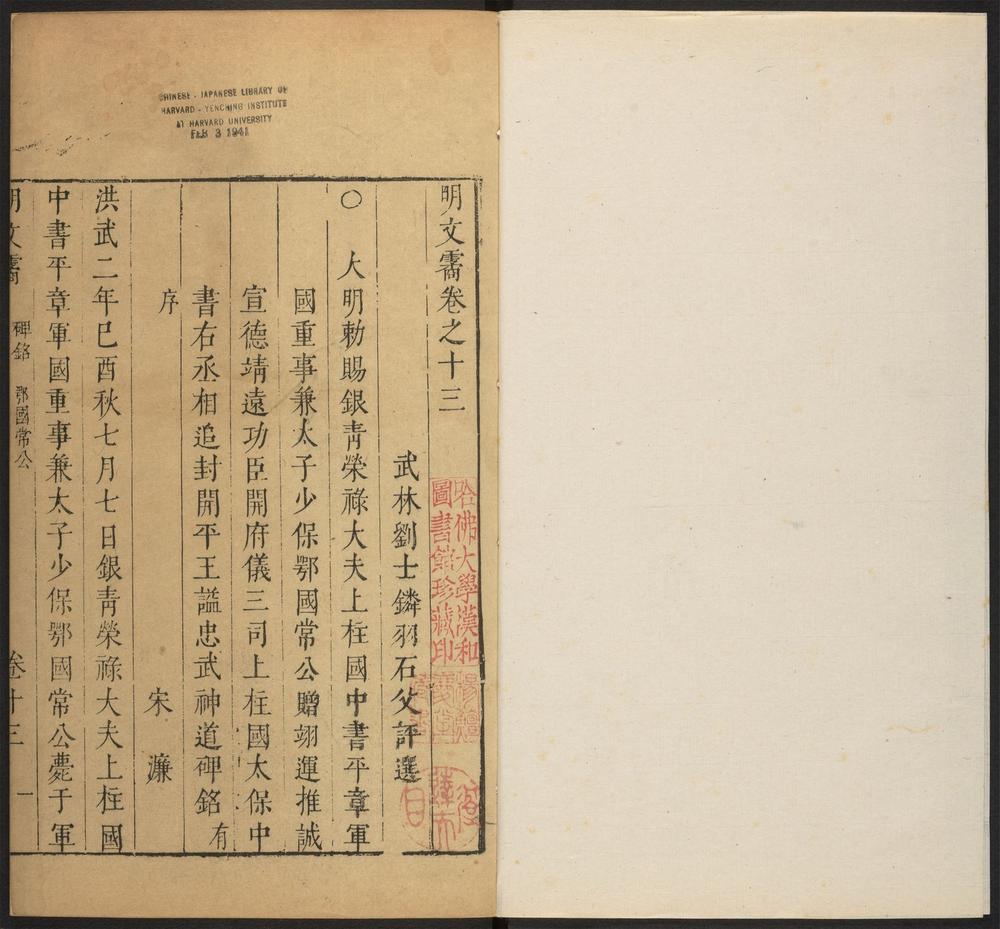 CHINESE - JAPANESE LIBRARY OF
HARVARD - YENCHING INSTITUTE
AT HARVARD UNIVERSITY
FEB 3 1941
明文霱卷之十三
武林劉士鏻羽石父評選
○大明勅賜銀青榮祿大夫上柱國中書平章軍
國重事兼太子少保鄂國常公贈翊運推誠
宣德靖遠功臣開府儀三司上柱國太保中
書右丞相追封開平王謚忠武神道碑銘有
序
宋濂
洪武二年巳酉秋七月七日銀青榮祿大夫上柱國
中書平章軍國重事兼太子少保鄂國常公薨于軍
明文霱
碑銘 鄂國常公
卷十三
一
哈佛大學漢和
圖書館珍藏印